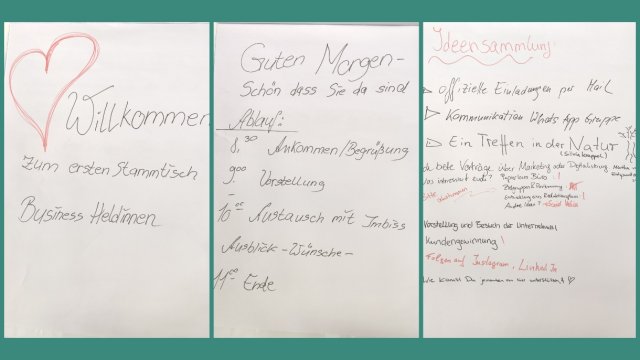 Willkommen
zum ersten Stammtisch
Business Heldinnen
Guten Morgen -
Schön dass Sie da sind
Ablauf:
8,30 Ankommen/Begrüßung
9.00 Vorstellung
10.00 Austausch mit Imbiss
Ausblick - Wünsche -
11.00 Ende
Ideensammlung
offizielle Einladungen per Mail
Kommunikation Whats App Gruppe
Ein Treffen in der Natur
Ich biete Vorträge über Marketing oder Digitalisierung
Was interessiert euch? Papierloses Büro
Bitte
Andre Ideen?
Vorstellung und Besuch der Unternehmen
Kundengewinnung !
Folgen auf Instagram, LinkedIn